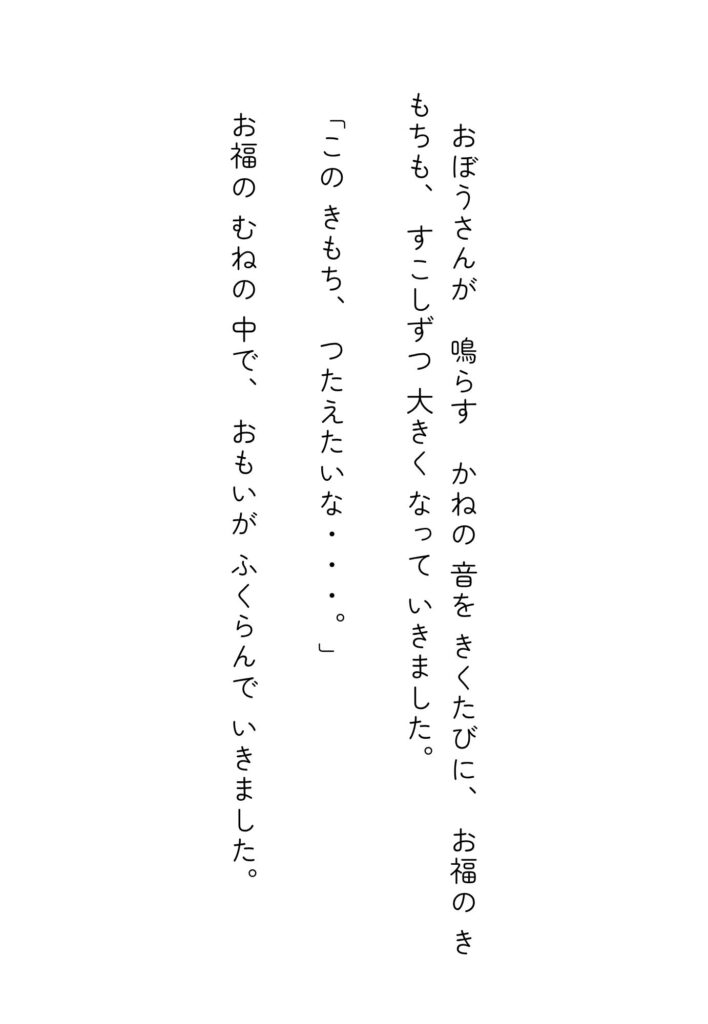 おぼうさんが　鳴らす　かねの 音を きくたびに、　お福の き
もちも、　すこしずつ 大きく なって いきました。
「この きもち、　つたえたいな・・・。」
お福の むねの 中で、　おもいが ふくらんで いきました。